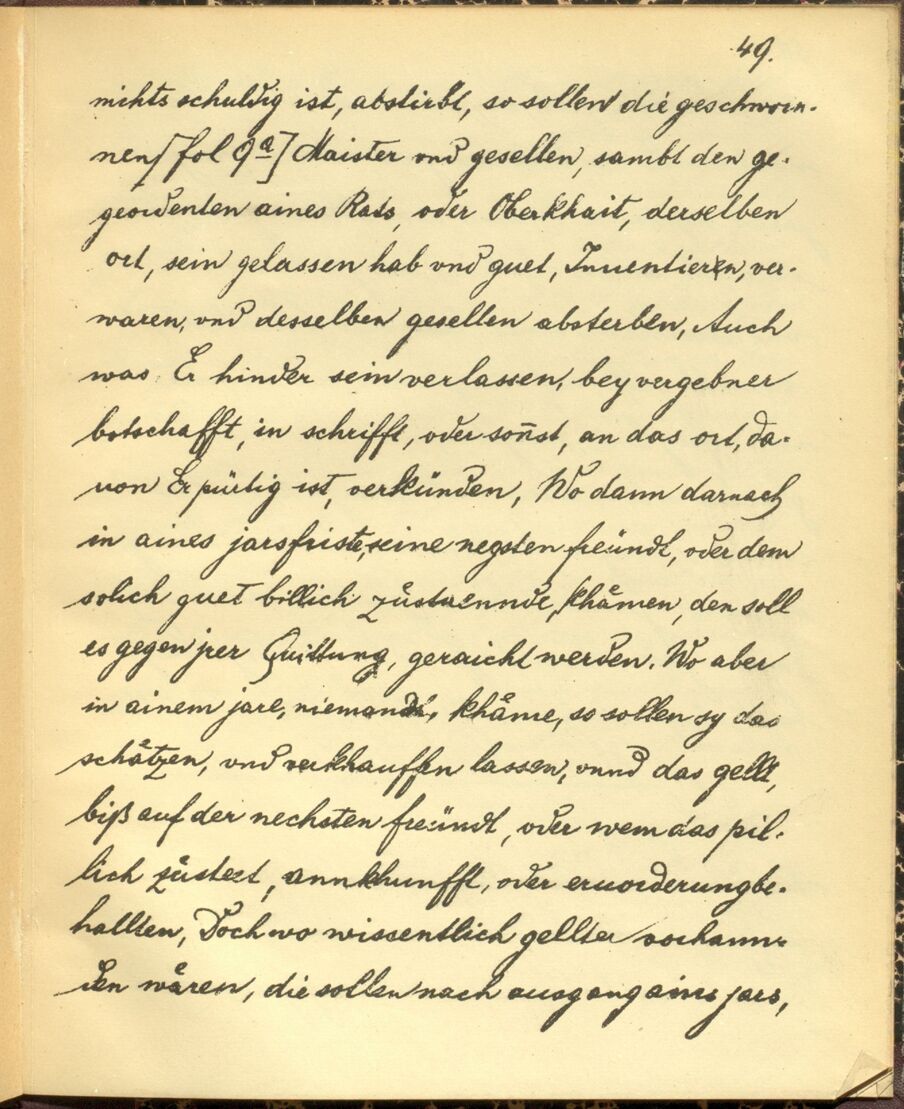 49.
nichts schuldig ist, abstirbt, so sollen die geschwor-
nen [fol 9a] Maister vnd gesellen, sambt den ge-
geordenten aines Rats, oder Oberkhait, derselben
ort, sein gelassen hab vnd guet, Inuentieren, ver-
waren, vnd desselben gesellen absterben, Auch
was Er hinder sein verlassen, bey vergebner
botschafft, in schrifft, oder son̄st, an das ort, da-
uon Er pürtig ist, verkünden, Wo dann darnach
in aines jarsfriste, seine negsten freündt, oder dem
solich guet billich zůstuennde, khåmen, den soll
es gegen jrer Quittung, geraicht werden. Wo aber
in ainem jare, niemandt, khåme, so sollen sy das
schåtzen, vnd verkhauffen lassen, vnnd das gellt,
biß auf der nechsten freündt, oder wem das pil-
lich zůsteet, annkhunfft, oder eruorderung be-
hallten, Doch wo wissentlich gellter vorhann-
den wåren, die sollen nach ausgang ains jars,